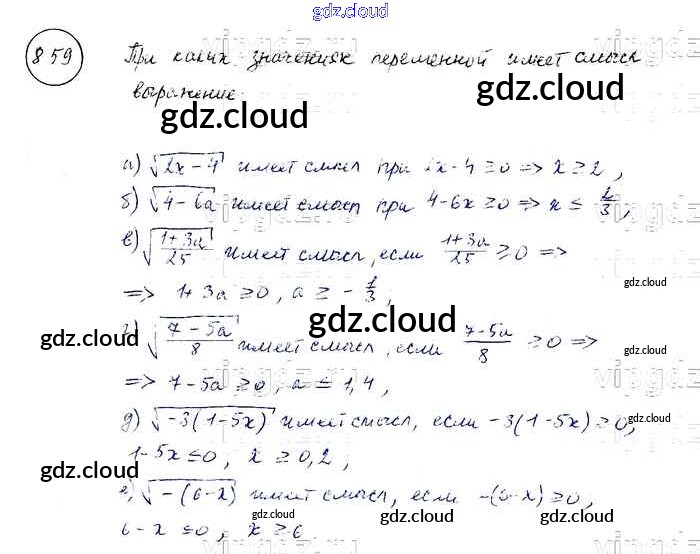 gdz.cloud
859 При каких значениях переменной имеет смысл
выражение.
gdz.cloud gdz.cloud
а) √(2x-4) имеет смысл при 2x-4 ≥ 0 => x ≥ 2,
б) √(4-6a) имеет смысл при 4-6x ≥ 0 => x ≤ 2/3,
в) √((1+3a)/25) имеет смысл, если (1+3a)/25 ≥ 0 =>
gdz.cloud
=> 1+3a ≥ 0, a ≥ -1/3;
gdz.cloud gdz.cloud
г) √((7-5a)/8) имеет смысл, если (7-5a)/8 ≥ 0 =>
gdz.cloud
=> 7-5a ≥ 0, a ≤ 1,4,
д) √(-3(1-5x)) имеет смысл, если -3(1-5x) ≥ 0,
1-5x ≤ 0, x ≥ 0,2;
gdz.cloud gdz.cloud
е) √(-(6-x)) имеет смысл, если -(6-x) ≥ 0,
gdz.cloud gdz.cloud
6-x ≤ 0, x ≥ 6